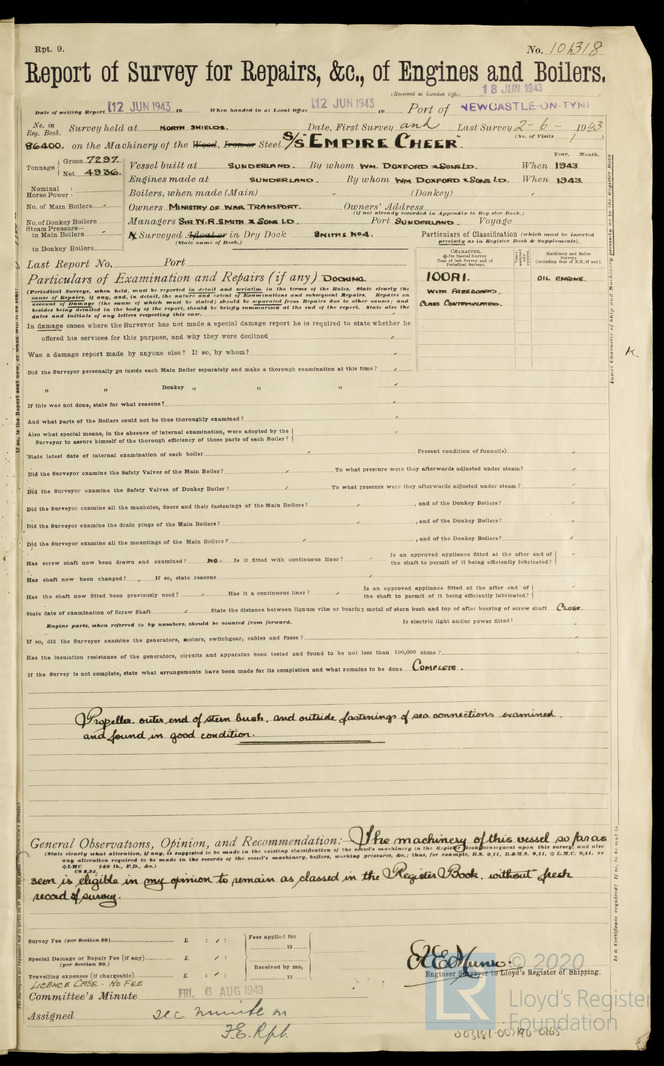 Rpt. 9.
No. 106318
Report of Survey for Repairs, &c., of Engines and Boilers.
(Received at London Office 18 JUN 1943
Date of writing Report 12 JUN 1943 19 When handed in at Local Office 12 JUN 1943 19 Port of NEWCASTLE-ON-TYNE
No. in Reg. Book. Survey held at NORTH SHIELDS. Date, First Survey and Last Survey 2-6- 1943
(No. of Visits 1 )
86400. on the Machinery of the Wood, Iron or Steel S/S "EMPIRE CHEER.
Tonnage Gross 7297. Net 4936.
Vessel built at SUNDERLAND. By whom WM. DOXFORD & SONS LD. When 1943
Year. Month.
Engines made at SUNDERLAND. By whom WM DOXFORD & SONS LD. When 1943.
Nominal Horse Power
Boilers, when made (Main) (Donkey)
No. of Main Boilers
Owners MINISTRY OF WAR TRANSPORT. Owners' Address
(if not already recorded in Appendix to Register Book.)
No. of Donkey Boilers
Managers SIR W. R. SMITH & SONS LD. Port SUNDERLAND. Voyage
Steam Pressure in Main Boilers
in Donkey Boilers
If Surveyed Afloat or in Dry Dock SMITHS No4.
(State name of Dock.)
Particulars of Classification (which must be inserted precisely as in Register Book & Supplements).
Last Report No. Port
Particulars of Examination and Repairs (if any) DOCKING
100A1.
WITH FREEBOARD.
CLASS CONTEMPLATED.
OIL ENGINE.
(Periodical Surveys, when held, must be reported in detail and seriatim in the terms of the Rules. State clearly the
cause of Repairs, if any, and, in detail, the nature and extent of Examinations and subsequent Repairs. Repairs on
account of Damage (the cause of which must be stated) should be separated from Repairs due to other causes; and
besides being detailed in the body of the report, should be briefly summarised at the end of the report. State also the
dates and initials of any letters respecting this case.
In damage cases where the Surveyor has not made a special damage report he is required to state whether he
offered his services for this purpose, and why they were declined
Was a damage report made by anyone else? If so, by whom?
Did the Surveyor personally go inside each Main Boiler separately and make a thorough examination at this time?
" " Donkey " " "
If this was not done, state for what reasons?
And what parts of the Boilers could not be thus thoroughly examined?
Also what special means, in the absence of internal examination, were adopted by the
Surveyor to assure himself of the thorough efficiency of those parts of each Boiler?
State latest date of internal examination of each boiler Present condition of funnel(s)
Did the Surveyor examine the Safety Valves of the Main Boiler? To what pressure were they afterwards adjusted under steam?
Did the Surveyor examine the Safety Valves of Donkey Boiler? To what pressure were they afterwards adjusted under steam?
Did the Surveyor examine all the manholes, doors and their fastenings of the Main Boilers? , and of the Donkey Boilers?
Did the Surveyor examine the drain plugs of the Main Boilers? , and of the Donkey Boilers?
Did the Surveyor examine all the mountings of the Main Boilers? , and of the Donkey Boilers?
Has screw shaft now been drawn and examined? No. Is it fitted with continuous liner? Is an approved appliance fitted at the after end of the shaft to permit of it being efficiently lubricated?
Has shaft now been changed? If so, state reasons
Has the shaft now fitted been previously used? Has it a continuous liner? Is an approved appliance fitted at the after end of the shaft to permit of it being efficiently lubricated?
State date of examination of Screw Shaft State the distance between lignum vitæ or bearing metal of stern bush and top of after bearing of screw shaft CLOSE.
Engine parts, when referred to by numbers, should be counted from forward. Is electric light and/or power fitted?
If so, did the Surveyor examine the generators, motors, switchgear, cables and fuses?
Has the insulation resistance of the generators, circuits and apparatus been tested and found to be not less than 100,000 ohms?
If the Survey is not complete, state what arrangements have been made for its completion and what remains to be done COMPLETE.
Propeller, outer end of stern bush, and outside fastenings of sea connections examined
and found in good condition.
General Observations, Opinion, and Recommendation: The machinery of this vessel so far as
seen is eligible in my opinion to remain as classed in the Register Book, without fresh
record of survey.
Survey Fee (per Section 29) £ : :
Fees applied for 19
Special Damage or Repair Fee (if any) (per Section 29.) £ : :
Received by me, 19
Travelling expenses (if chargeable) £ : :
LICENCE CASE - NO FEE
Engineer Surveyor to Lloyd's Register of Shipping.
Committee's Minute FRI. 6 AUG 1943
Assigned See minute on
F.E. Rpt.
© 2020
LR
Lloyd's Register
Foundation